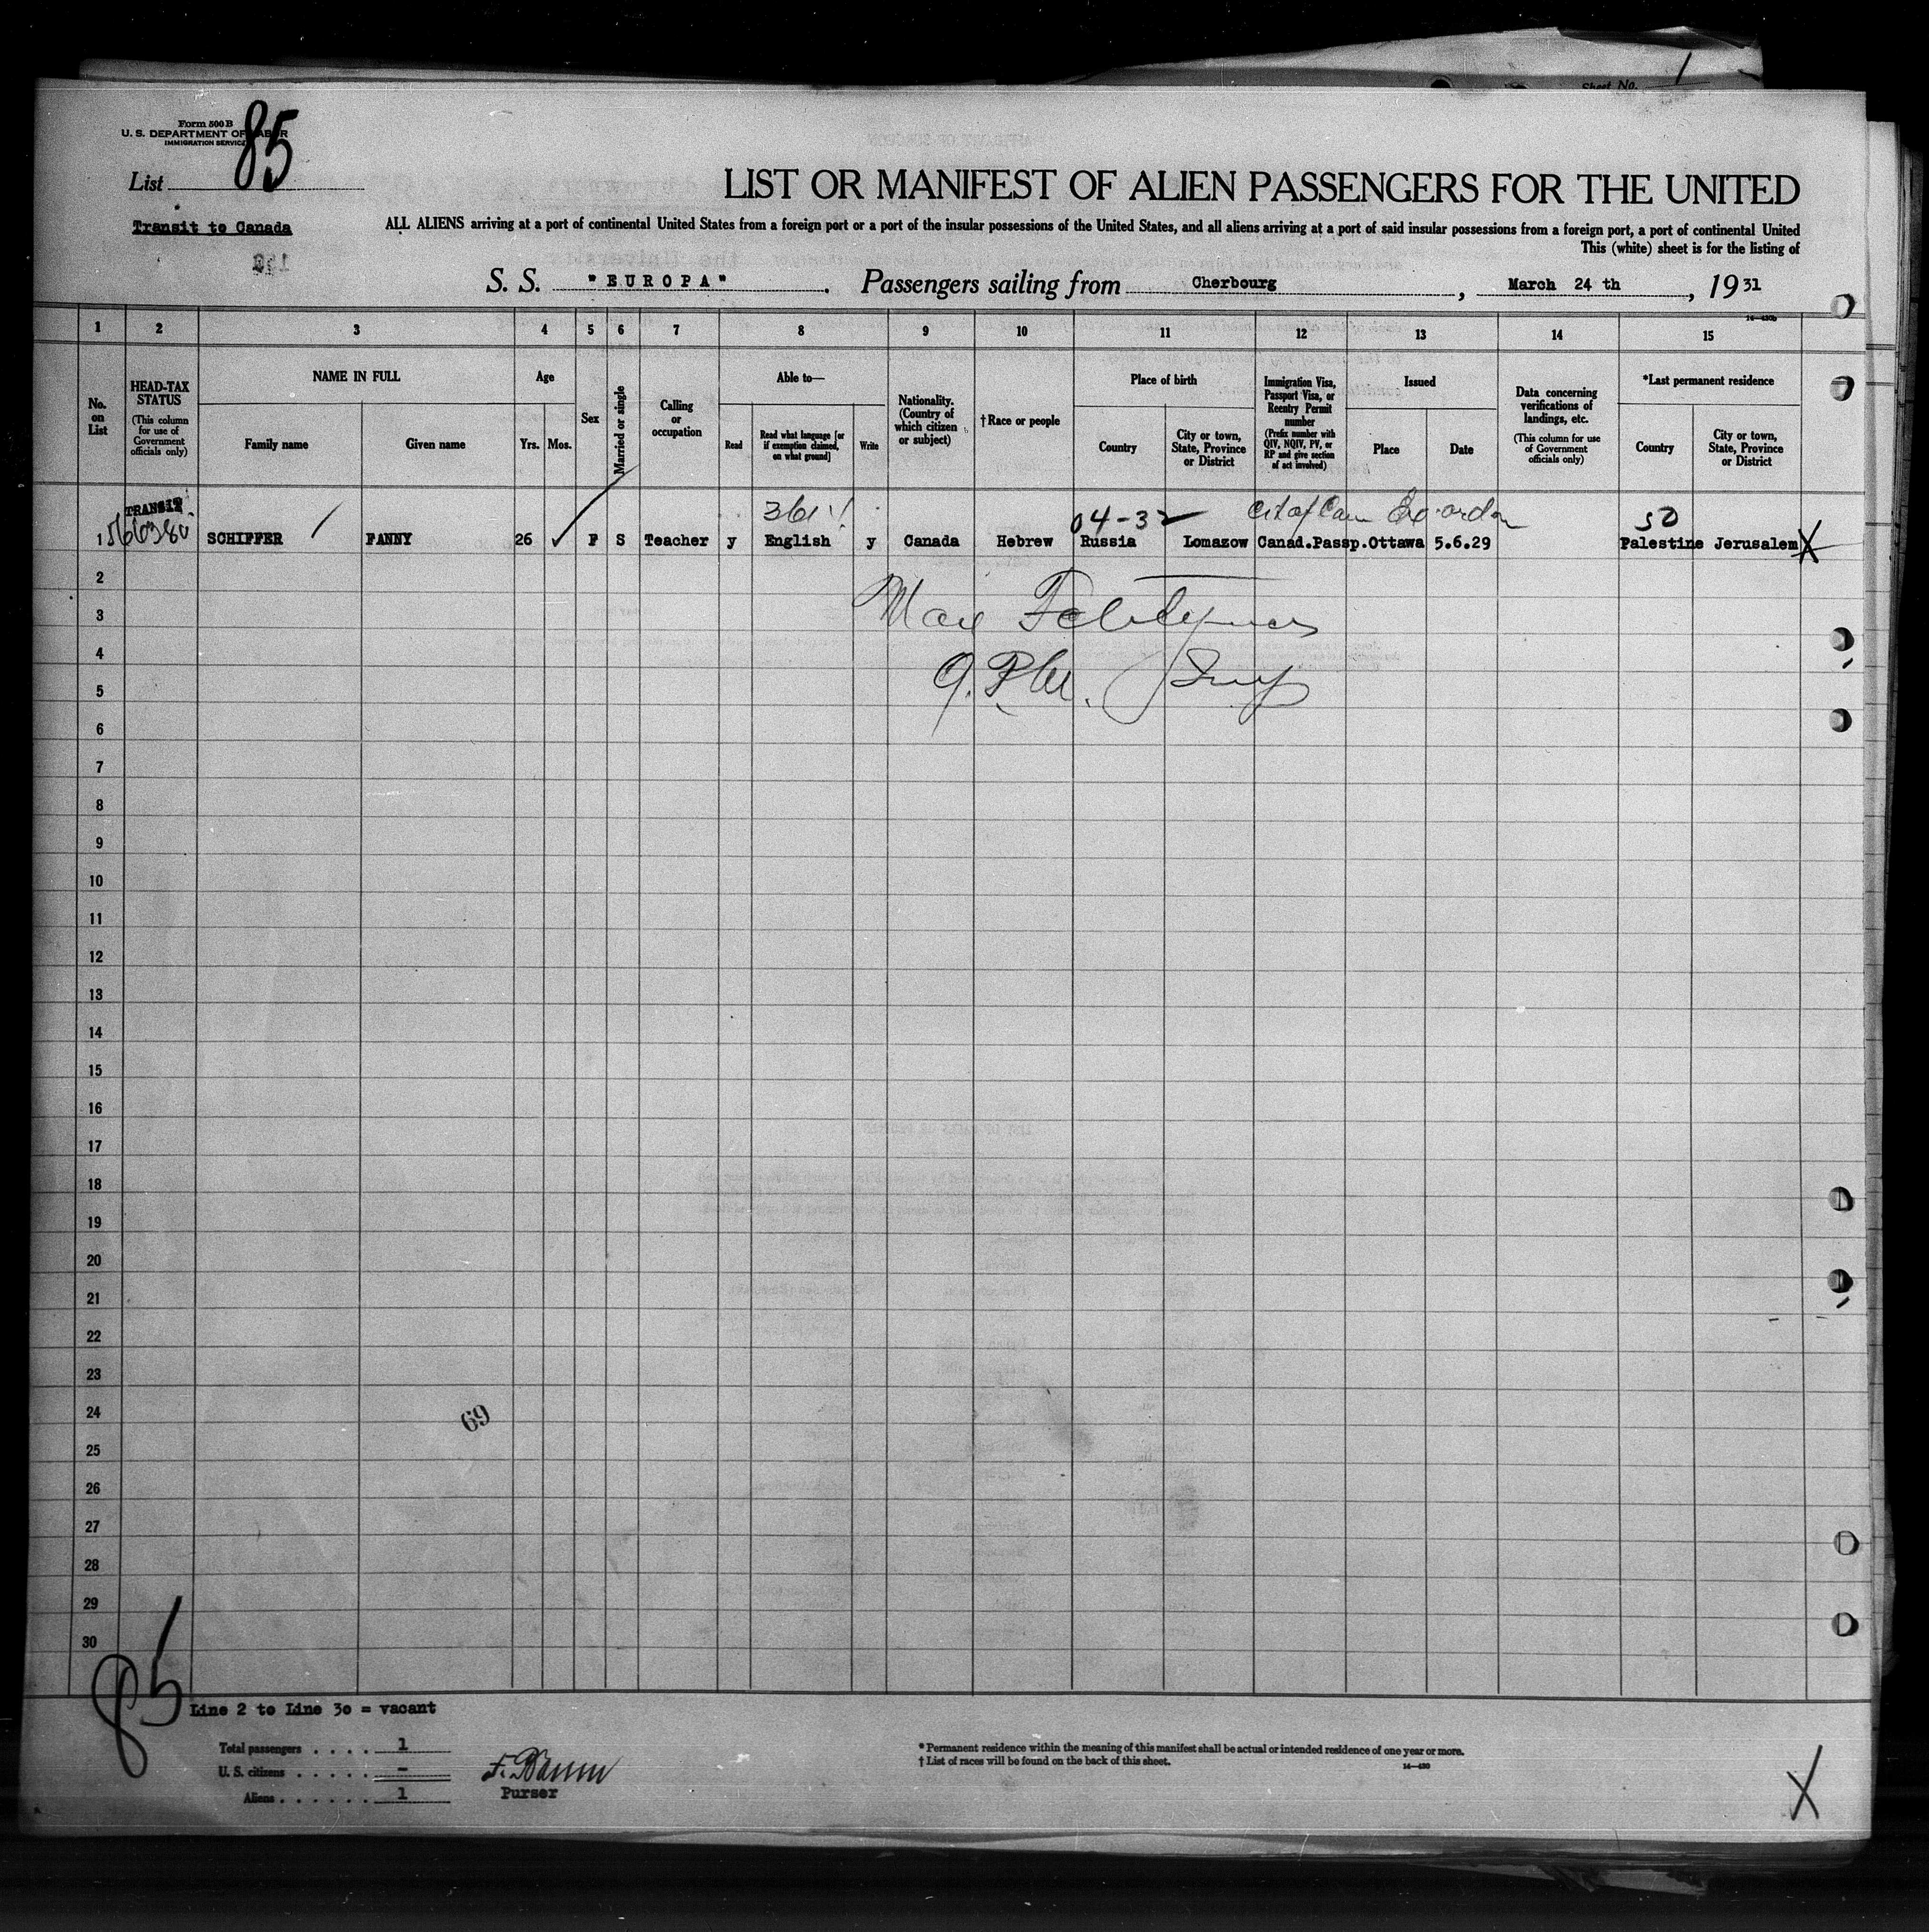 Sheet No. 1
Form 500 B
U. S. DEPARTMENT OF LABOR
IMMIGRATION SERVICE
List 85
LIST OR MANIFEST OF ALIEN PASSENGERS FOR THE UNITED
Transit to Canada
ALL ALIENS arriving at a port of continental United States from a foreign port or a port of the insular possessions of the United States, and all aliens arriving at a port of said insular possessions from a foreign port, a port of continental United
This (white) sheet is for the listing of
S. S. "EUROPA". Passengers sailing from Cherbourg, March 24 th, 1931
14—430b
1 2 3 4 5 6 7 8 9 10 11 12 13 14 15
No. on List
HEAD-TAX STATUS
(This column for use of Government officials only)
NAME IN FULL
Family name
Given name
Age
Yrs.
Mos.
Sex
Married or single
Calling or occupation
Able to—
Read
Read what language [or if exemption claimed, on what ground]
Write
Nationality. (Country of which citizen or subject)
†Race or people
Place of birth
Country
City or town, State, Province or District
Immigration Visa, Passport Visa, or Reentry Permit number
(Prefix number with QIV, NQIV, PV, or RP and give section of act involved)
Issued
Place
Date
Data concerning verifications of landings, etc.
(This column for use of Government officials only)
*Last permanent residence
Country
City or town, State, Province or District
TRANSIT 361 04-32 50
1 566380 SCHIFFER FANNY 26 ✓ F S Teacher y English y Canada Hebrew Russia Lomazow Canad.Passp.Ottawa 5.6.29 Palestine Jerusalem X
2
3 Max
4
5
6
7
8
9
10
11
12
13
14
15
16
17
18
19
20
21
22
23
24
69
25
26
27
28
29
30
85
Line 2 to Line 30 = vacant
Total passengers . . . . 1
U. S. citizens . . . . . –
Aliens . . . . . . 1
Purser
* Permanent residence within the meaning of this manifest shall be actual or intended residence of one year or more.
† List of races will be found on the back of this sheet.
14—430
X